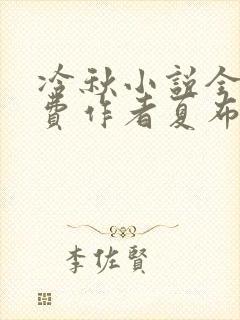 冷秋小説全
費作者夏布
李佐賢